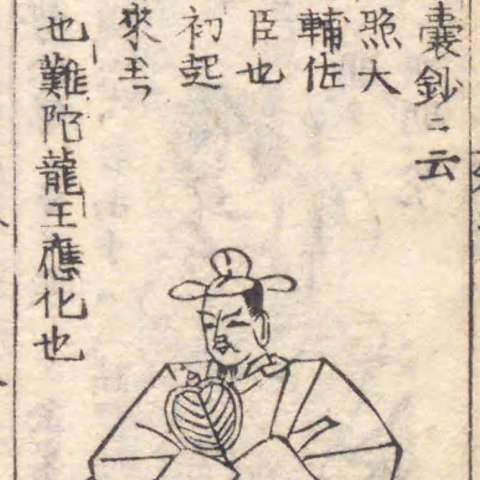 囊鈔ニ云
照大
輔佐
臣也
初起
來𤣩
也難陀龍王應化也